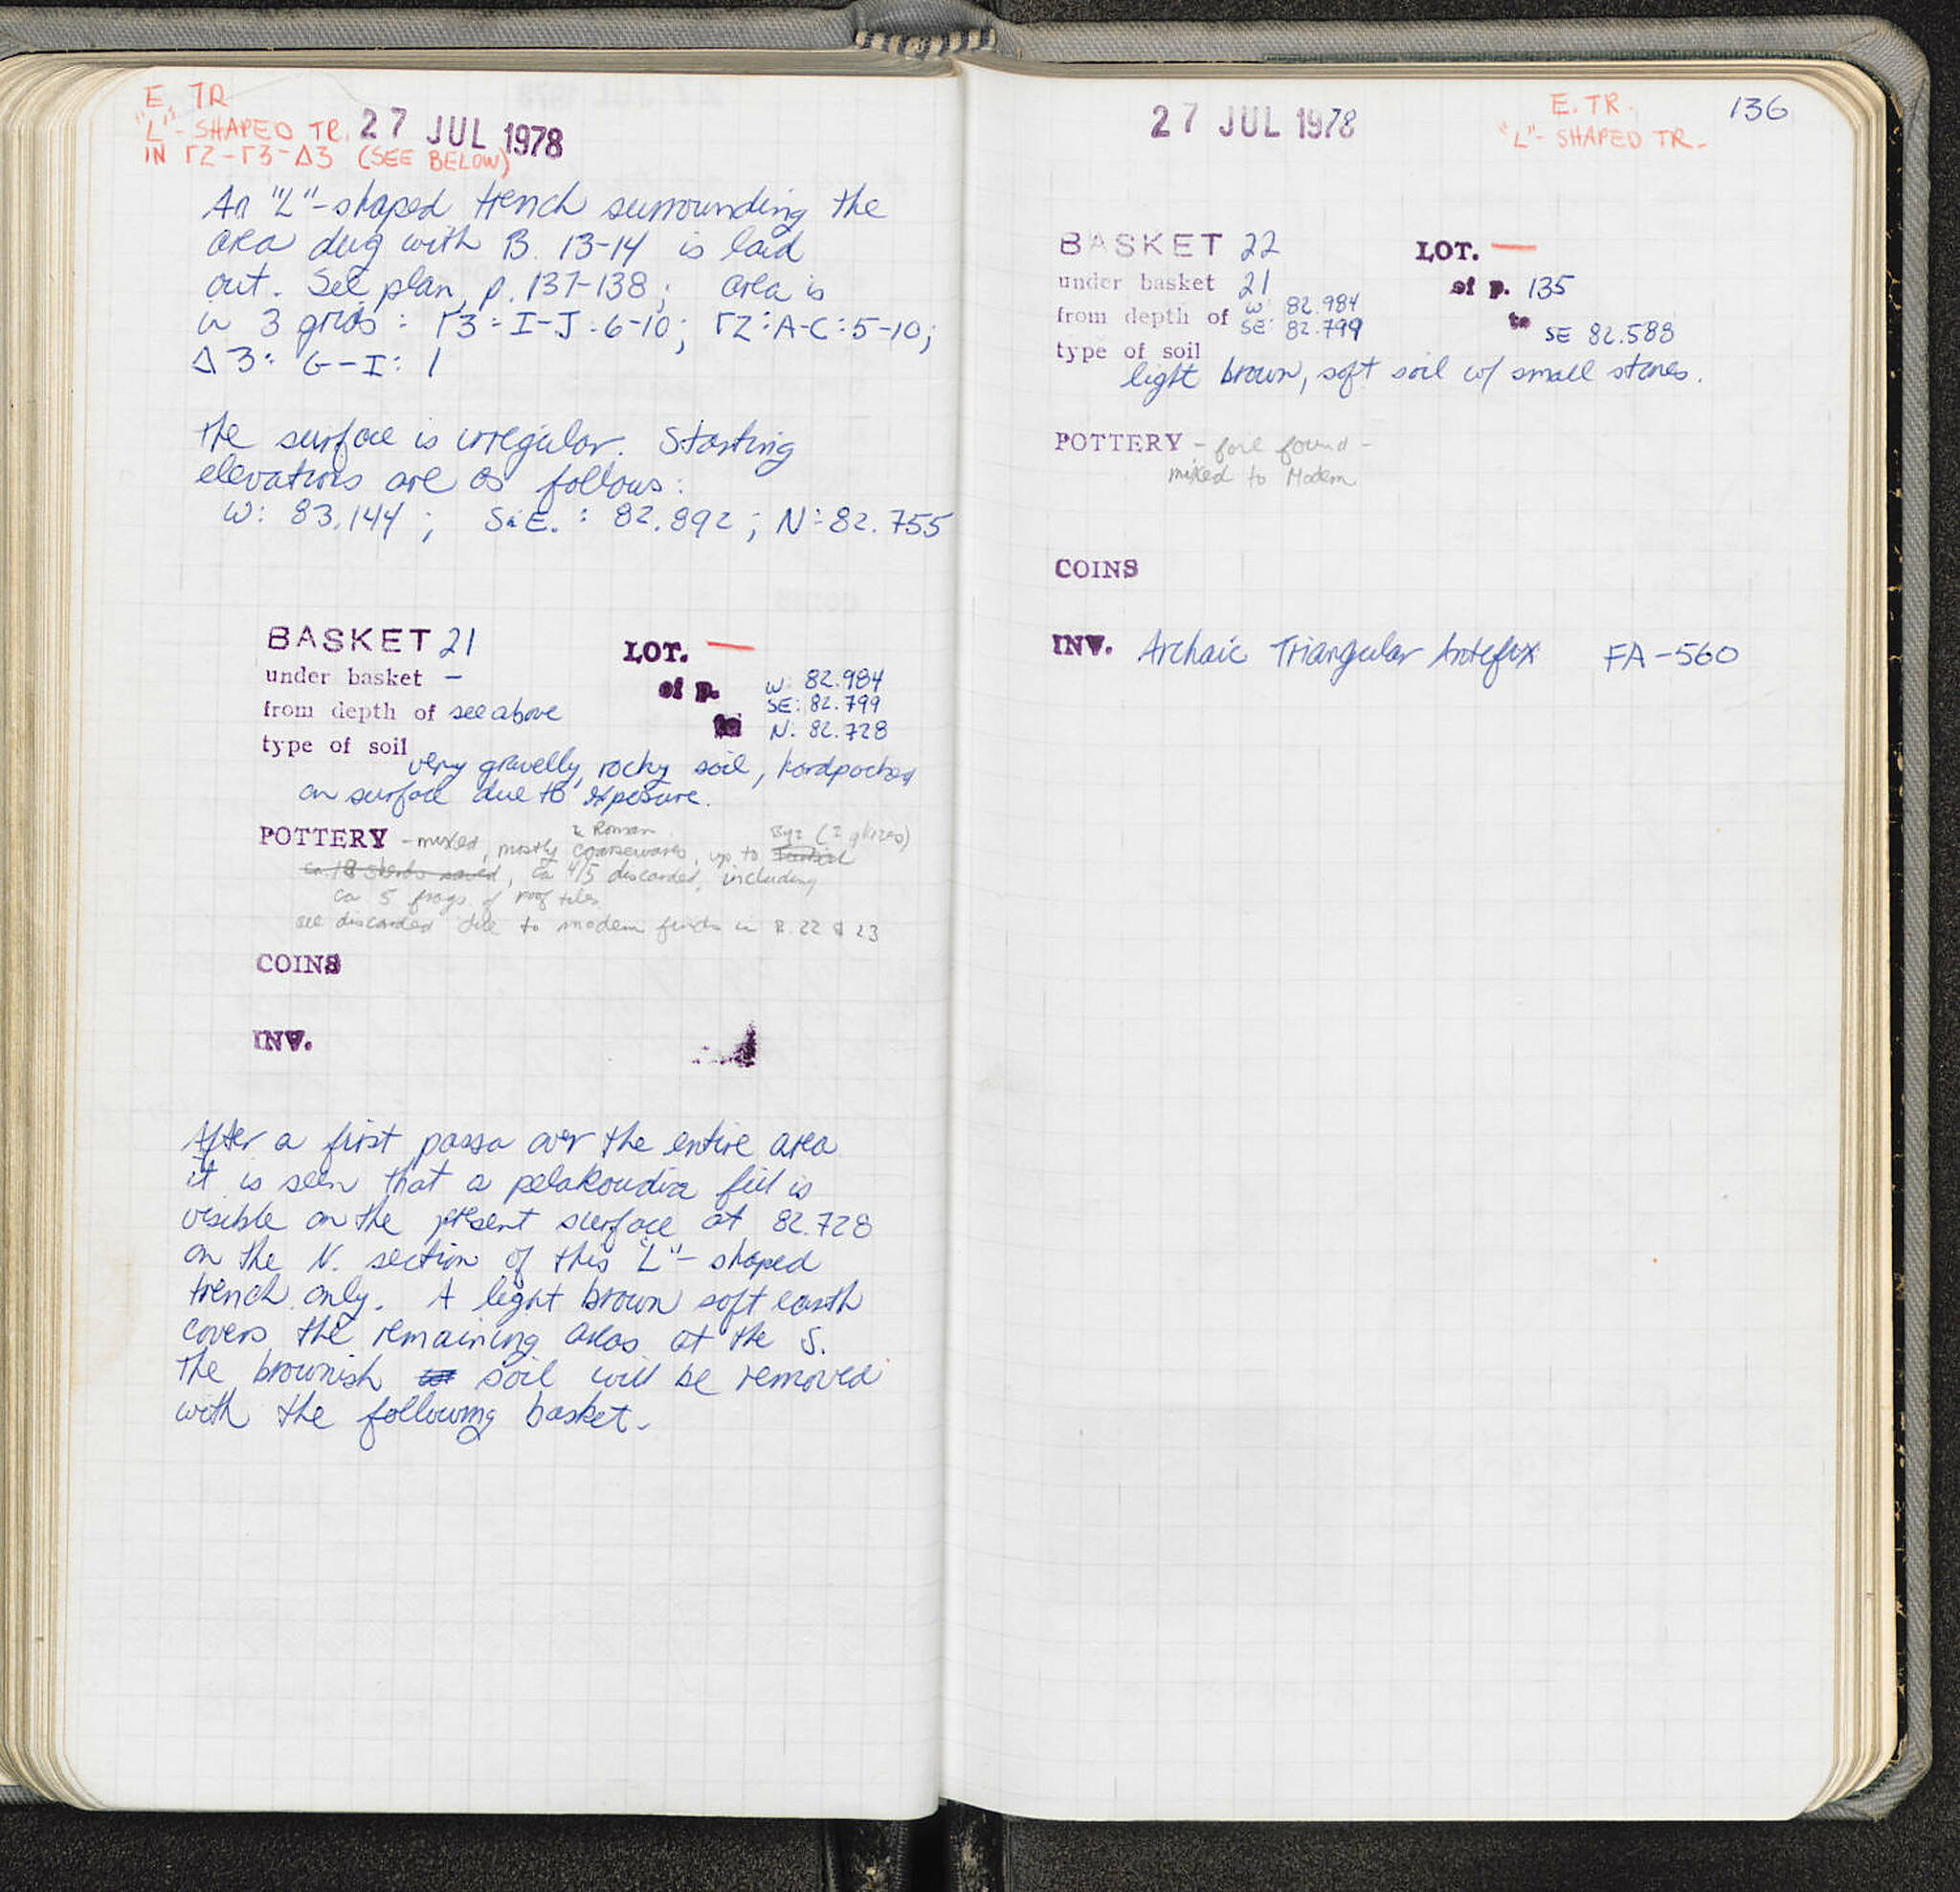 E. TR
"L"-SHAPED TR. 27 JUL 1978
IN Γ2-Γ3-Δ3 (SEE BELOW)
An "L"-shaped trench surrounding the
area dug with B. 13-14 is laid
out. See plan, p. 137-138; area is
in 3 grids: Γ3: I-J:6-10; Γ2:A-C:5-10;
Δ3: G-I: 1
The surface is irregular. Starting
elevations are as follows:
W: 83.144; S&E.: 82.892; N: 82.755
BASKET 21 LOT. —
under basket – of p. W: 82.984
from depth of see above to SE: 82.799
N: 82.728
type of soil very gravelly, rocky soil, hardpacked
on surface due to exposure.
POTTERY - mixed, mostly & Roman coarsewares, up to Byz (2 glazes)
ca. 18 sherds saved, ca 45 discarded, including
ca 5 frags of roof tiles
all discarded due to modern finds in B. 22 & 23
COINS
INV.
After a first passa over the entire area
it is seen that a pelakoudia fill is
visible on the present surface at 82.728
on the N. section of this "L"-shaped
trench only. A light brown soft earth
covers the remaining areas at the S.
The brownish soil will be removed
with the following basket.
27 JUL 1978 E. TR. 136
"L"-SHAPED TR.
BASKET 22 LOT. —
under basket 21 of p. 135
from depth of W: 82.984
SE: 82.799 to SE 82.588
type of soil
light brown, soft soil w/ small stones.
POTTERY - foil found -
mixed to Modern
COINS
INV. Archaic Triangular Antefix FA-560